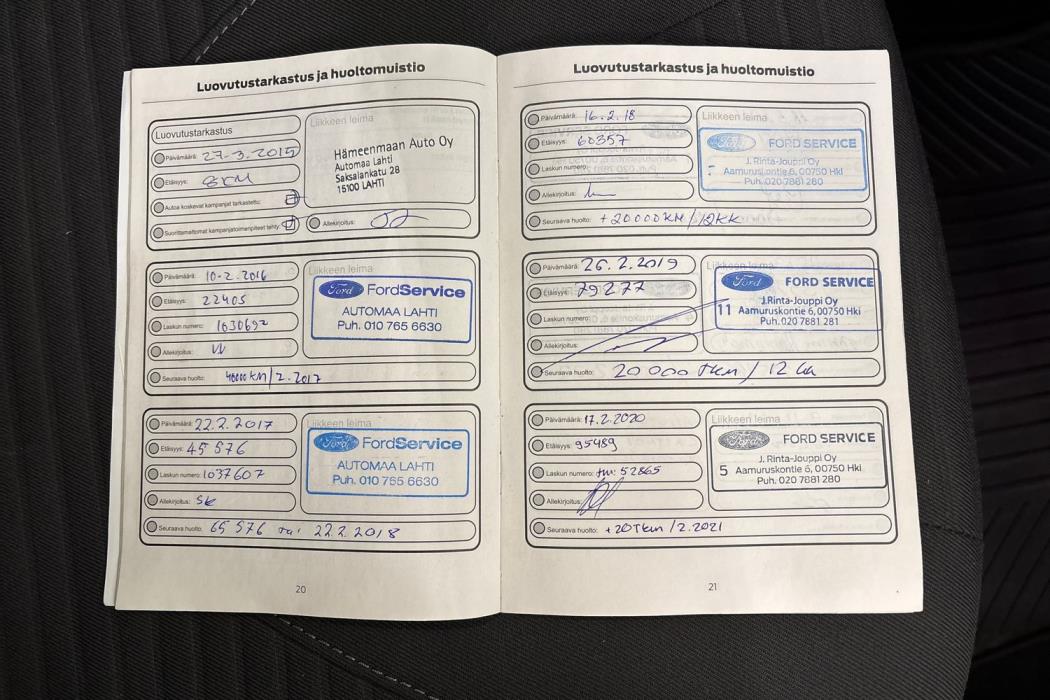 Luovutustarkastus ja huoltomuistio
Luovutustarkastus
Päivämäärä: 27.3.2015
Etäisyys: 8KM
Autoa koskevat kampanjat tarkastettu:
Suorittamattomat kampanjatoimenpiteet tehty:
Liikkeen leima
Hämeenmaan Auto Oy
Automaa Lahti
Saksalankatu 28
15100 LAHTI
Allekirjoitus:
Päivämäärä: 10.2.2016
Etäisyys: 22405
Laskun numero: 1030692
Allekirjoitus:
Seuraava huolto: 40000KM/2.2017
Liikkeen leima
Ford FordService
AUTOMAA LAHTI
Puh. 010 765 6630
Päivämäärä: 22.2.2017
Etäisyys: 45 576
Laskun numero: 1037607
Allekirjoitus: SK
Seuraava huolto: 65 576 tai 22.2.2018
Liikkeen leima
Ford FordService
AUTOMAA LAHTI
Puh. 010 765 6630
20
Luovutustarkastus ja huoltomuistio
Päivämäärä: 16.2.18
Etäisyys: 60357
Laskun numero:
Allekirjoitus:
Seuraava huolto: +20000KM/12KK
Liikkeen leima
Ford FORD SERVICE
J. Rinta-Jouppi Oy
Aamuruskontie 6, 00750 Hki
Puh. 020 7881 280
Päivämäärä: 26.2.2019
Etäisyys: 79277
Laskun numero:
Allekirjoitus:
Seuraava huolto: 20 000 tkm / 12 kk
Liikkeen leima
Ford FORD SERVICE
J.Rinta-Jouppi Oy
11 Aamuruskontie 6,00750 Hki
Puh. 020 7881 281
Päivämäärä: 17.2.2020
Etäisyys: 95489
Laskun numero: 52865
Allekirjoitus:
Seuraava huolto: +20Tkm/2.2021
Liikkeen leima
Ford FORD SERVICE
J. Rinta-Jouppi Oy
5 Aamuruskontie 6, 00750 Hki
Puh. 020 7881 280
21